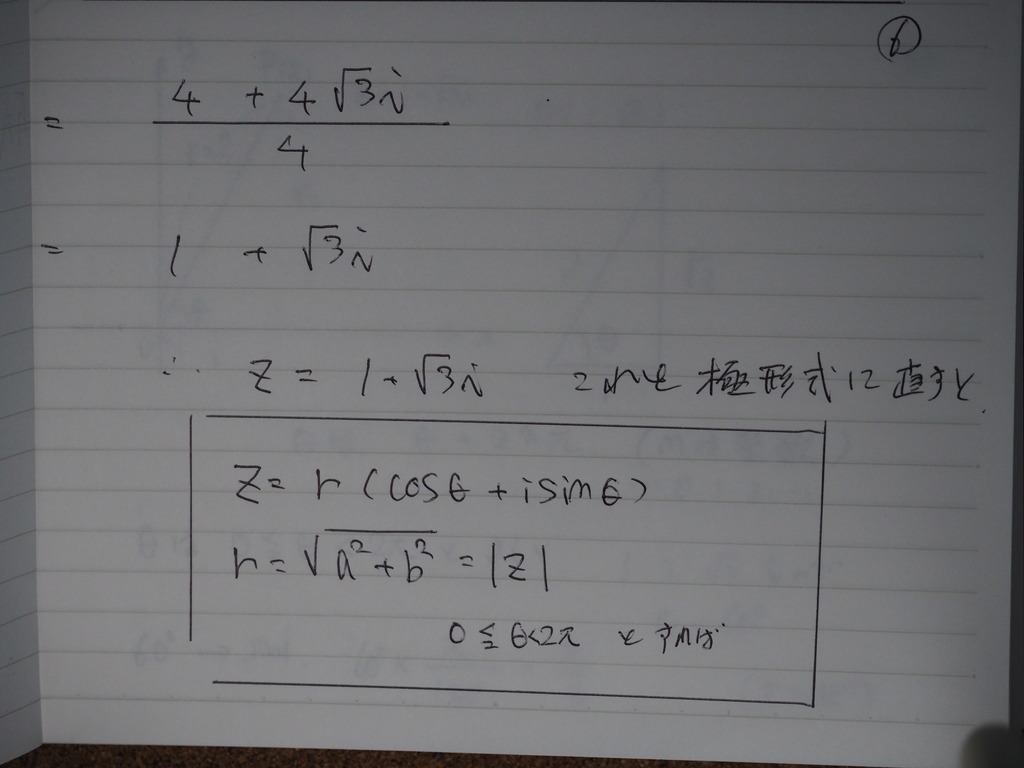 ⑥
= 4 + 4√3i / 4
= 1 + √3i
∴ z = 1+√3i これを極形式に直すと、
z = r (cosθ + isinθ)
r = √a²+b² = |z|
0 ≦ θ<2π とすれば